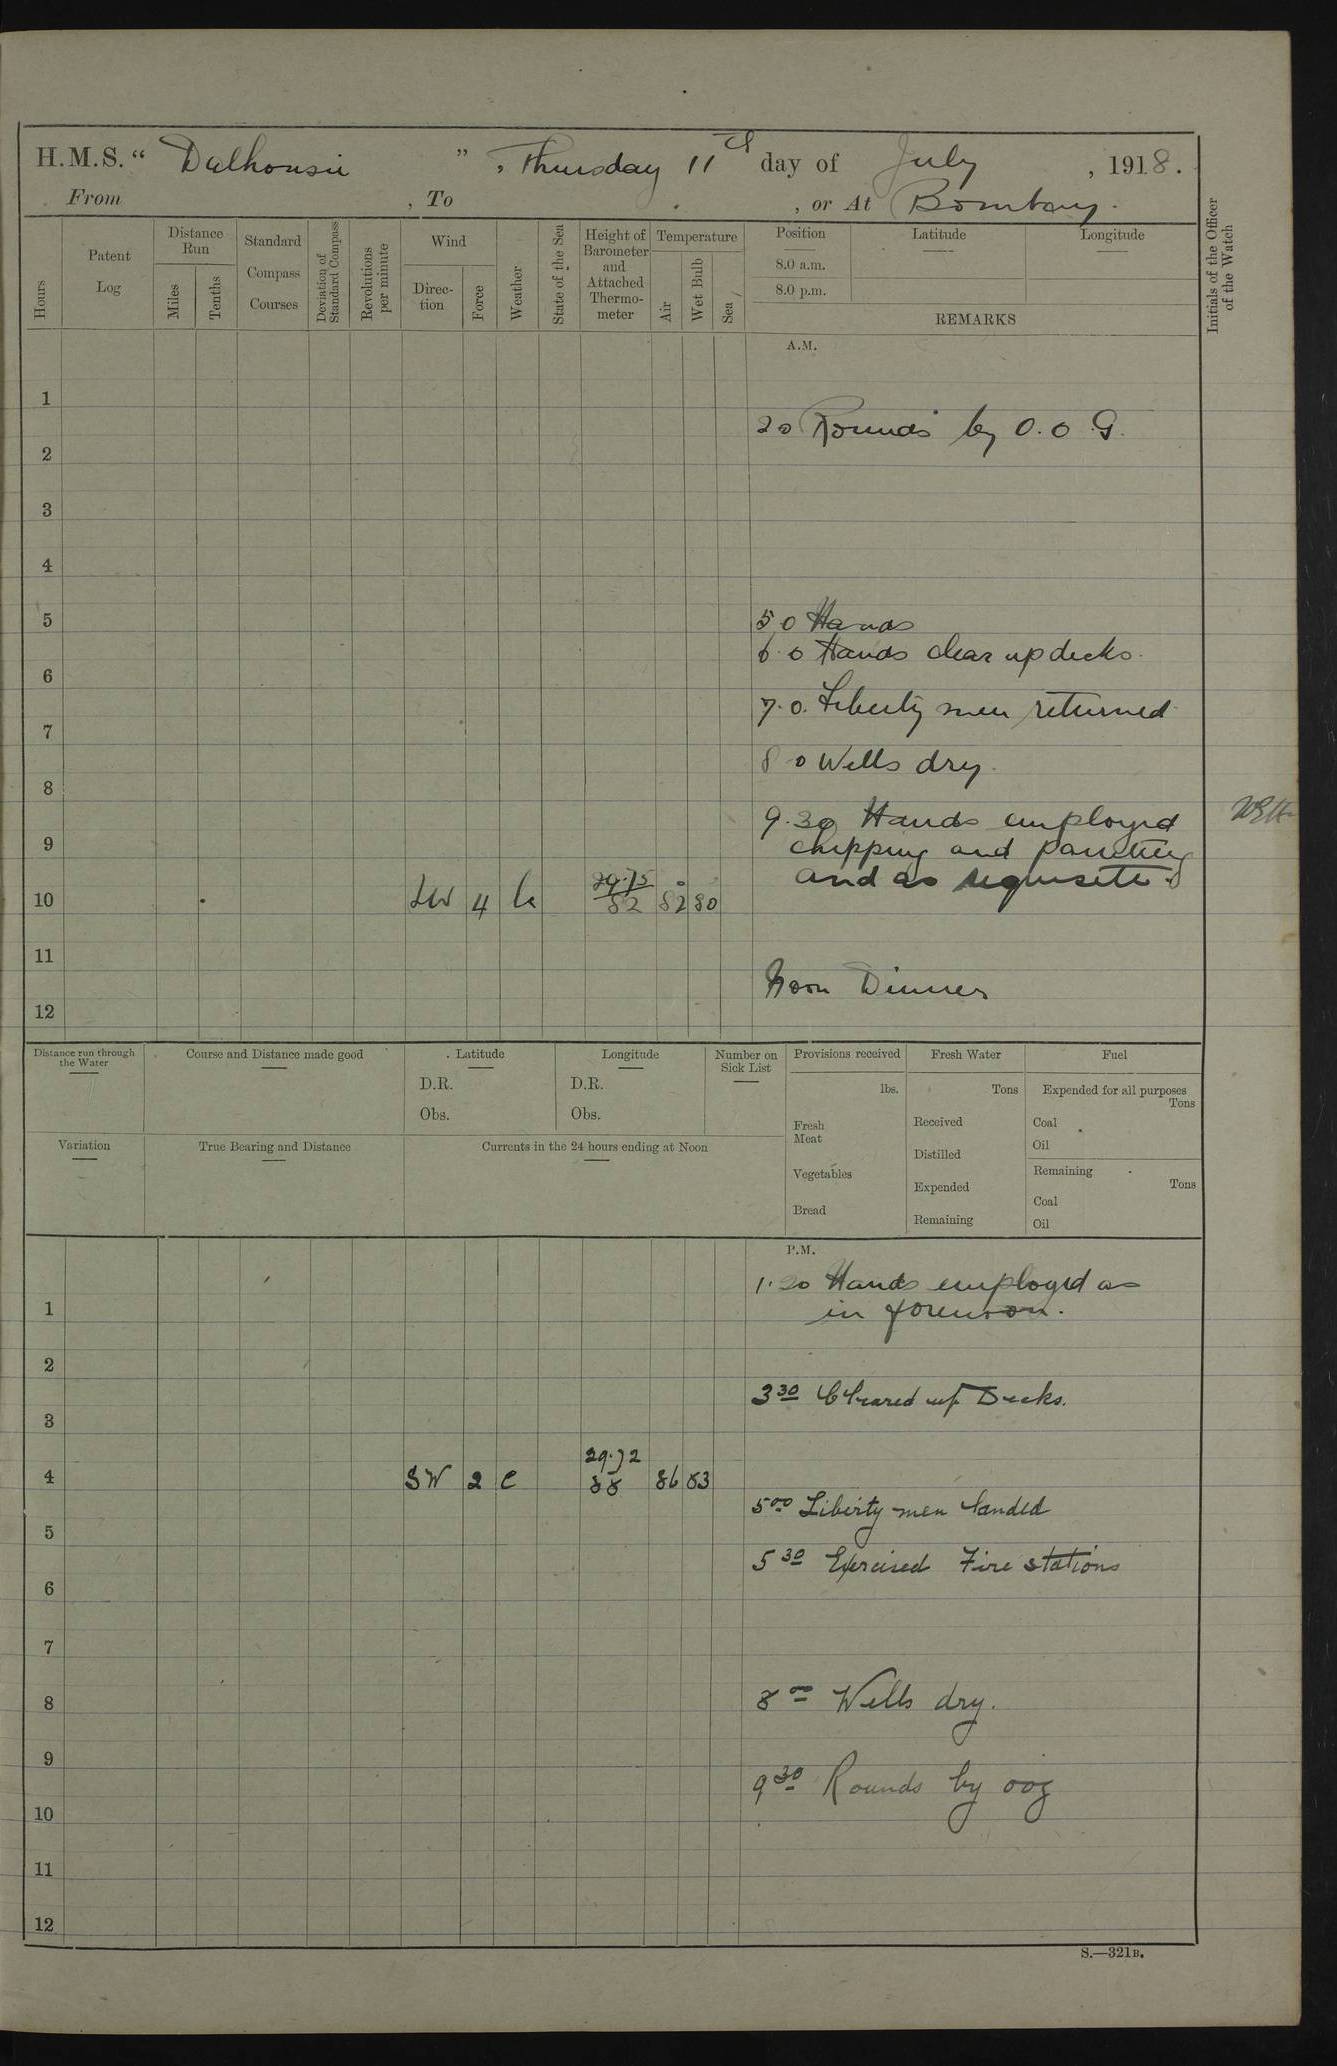 H.M.S. “ Dalhousie ” , Thursday 11th day of July , 1918.
From , To , or At Bombay.
Hours
Patent Log
Distance Run
Miles
Tenths
Standard Compass Courses
Deviation of Standard Compass
Revolutions per minute
Wind
Direction
Force
Weather
State of the Sea
Height of Barometer and Attached Thermometer
Temperature
Air
Wet Bulb
Sea
Position
8.0 a.m.
8.0 p.m.
Latitude
Longitude
REMARKS
Initials of the Officer of the Watch
A.M.
1
2 0 Rounds by O.O.G.
2
3
4
5 0 Hands
5
6.0 Hands clear up decks.
6
7.0. Liberty men returned
7
8 0 Wells dry.
8
9.30 Hands employed
9
chipping and painting
and as requisite.
29.75
10 4 82 82 80
11
Noon Dinner
12
Distance run through the Water
Course and Distance made good
Latitude
D.R.
Obs.
Longitude
D.R.
Obs.
Number on Sick List
Variation
True Bearing and Distance
Currents in the 24 hours ending at Noon
Provisions received
lbs.
Fresh Meat
Vegetables
Bread
Fresh Water
Tons
Received
Distilled
Expended
Remaining
Fuel
Expended for all purposes
Tons
Coal
Oil
Remaining
Tons
Coal
Oil
P.M.
1.20 Hands employed as
1
in forenoon.
2
3 30 Cleared up Decks.
3
29.72
4 SW 2 c 88 86 83
5 00 Liberty men landed
5
5 30 Exercised Fire stations
6
7
8 00 Wells dry.
8
9
9 30 Rounds by oog
10
11
12
S.—321B.